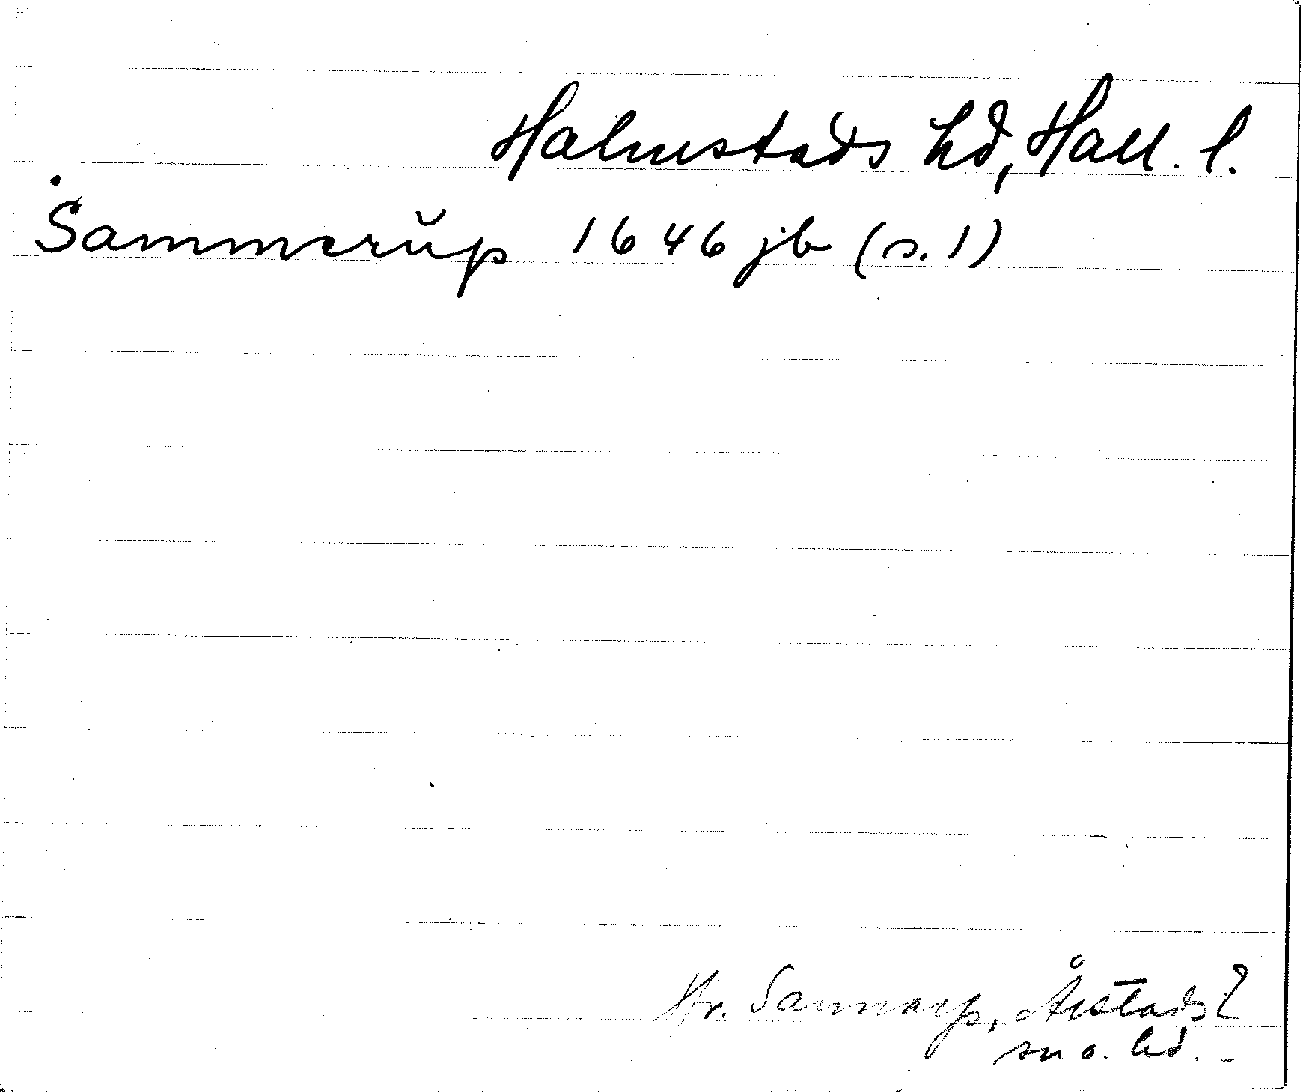 Halmstads hd, Hall. l.
Sammerŭp 1646 jb (s. 1)
Hr. Sannarp, Årstads?
sn o. hd.